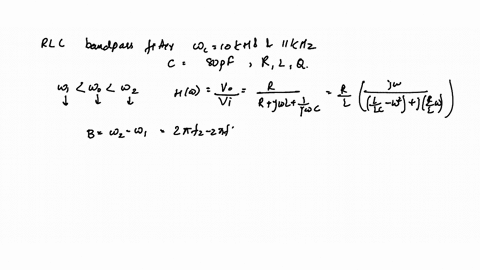 RLC bandpass filter ωc = 10 kHz & 11 kHz
C = 80 pF , R, L, Q.
ω1 < ω0 < ω2 H(ω) = Vo/Vi = R/(R + jωL + 1/(jωC)) = R/L (jω/((1/LC - ω²) + j(R/L ω)))
↓ ↓ ↓
B = ω2 - ω1 = 2πf2 - 2πf